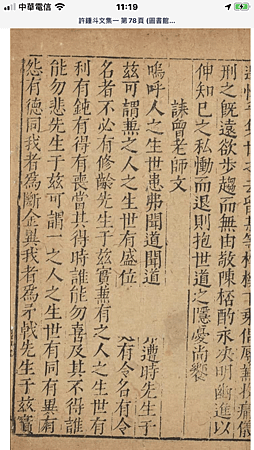 中華電信
11:19
許鍾斗文集一 第78頁 (圖書館...
刑之既遠欲步趨而無由敬陳桮酌永決明幽進以
伸知已之私慟而退則抱世道之隱憂尚饗
誄曾老師文
嗚呼人之生世患弗聞道聞道 遭時先生于
茲可謂兼之人之生世有盛位 有令名有令
名者不必有修齡先生于茲實兼有之人之生世有
利有鈍有得有喪當其得時誰能勿喜及其不得誰
能勿悲先生于茲可謂一之人之生世有同有異有
怨有德同我者為斷金異我者為矛戟先生于茲實